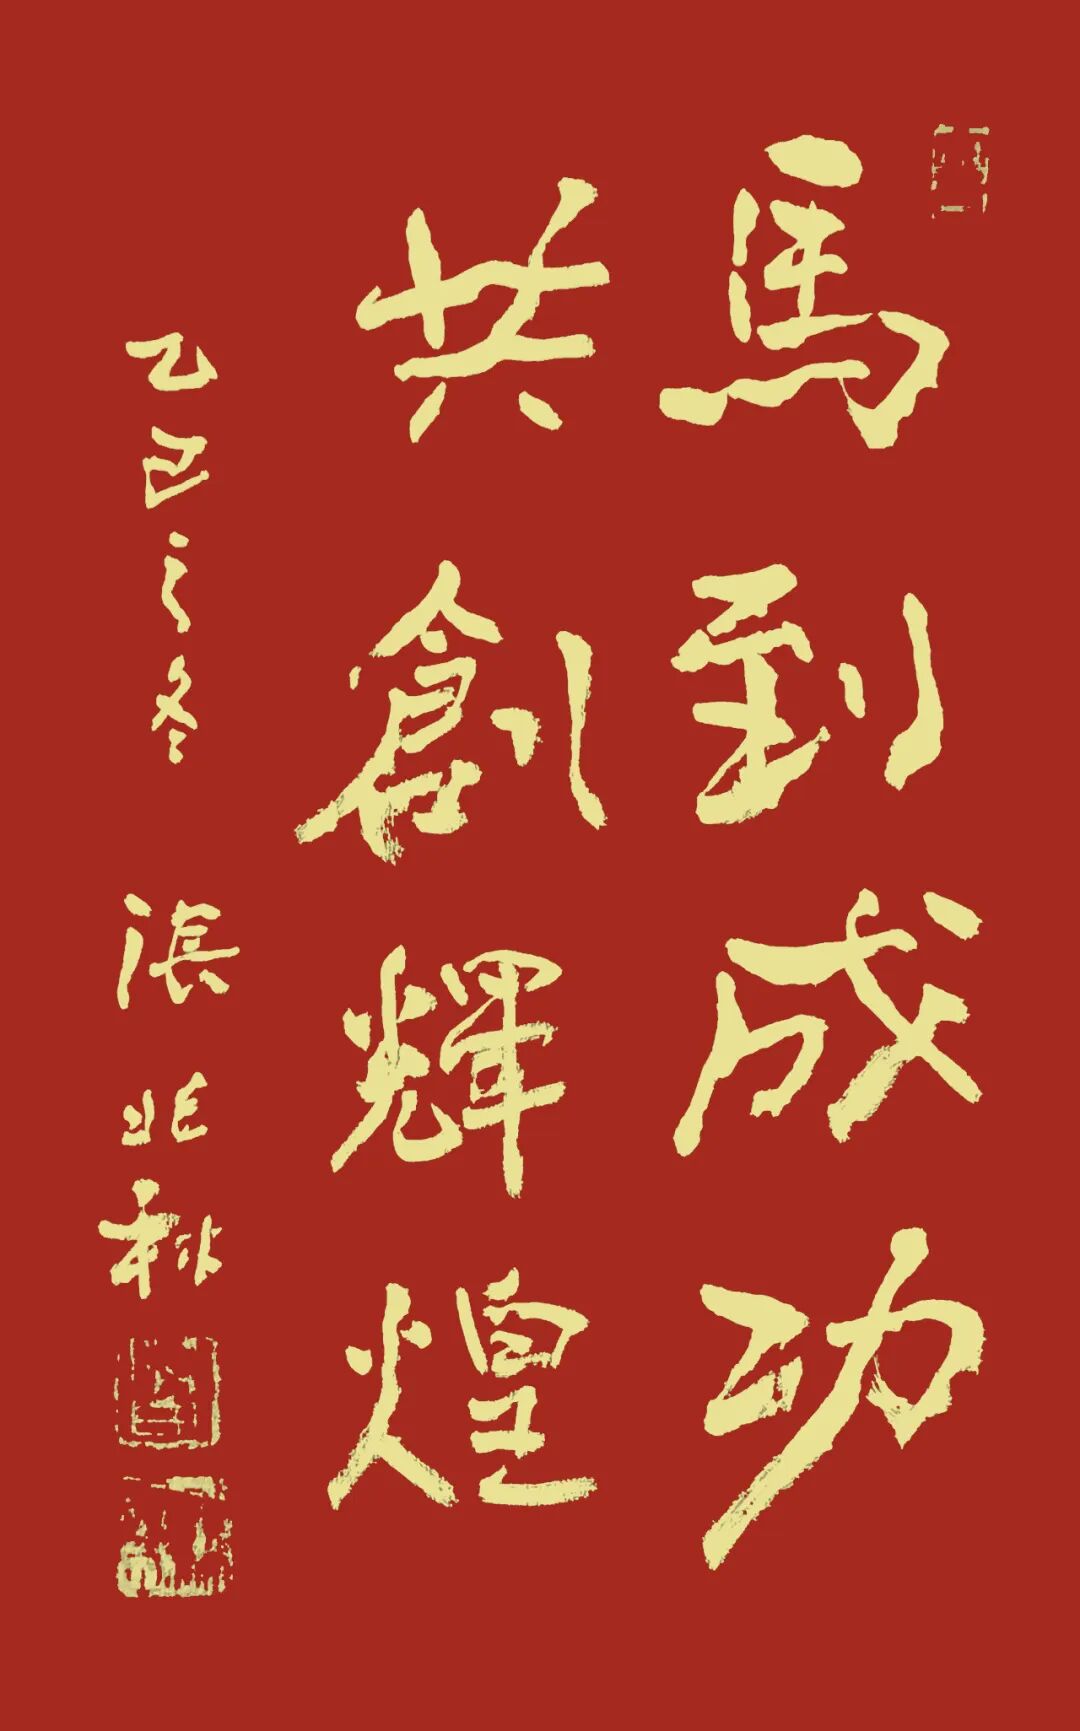 馬到成功
共創輝煌
乙巳之冬
張兆秋